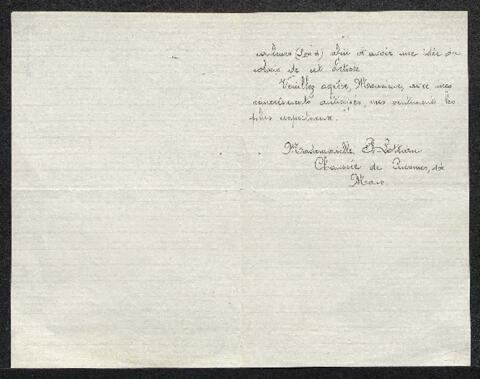 couleurs (    ) afin d'avoir une idée du
coloris de cet artiste
Veuillez agréer, Monsieur, avec mes
remerciements anticipés, mes sentiments les
plus respectueux.
Mademoiselle
Chaussée de
Mons